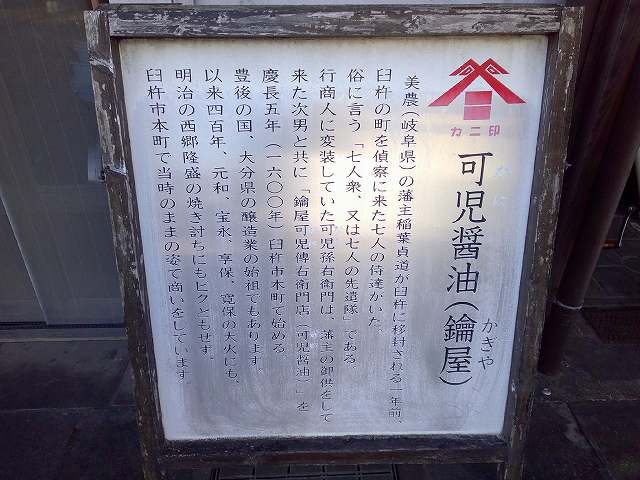 カニ印
可児醤油(鑰屋)
かに
かぎや
美農(岐阜県)の藩主稲葉貞道が臼杵に移封される一年前、
臼杵の町を偵察に来た七人の侍達がいた。
俗に言う「七人衆、又は七人の先遣隊」である。
行商人に変装していた可児孫右衛門は、藩主の御供をして
来た次男と共に「鑰屋可児傳右衛門店(可児醤油)」を
慶長五年(一六〇〇年)臼杵市本町で始める。
豊後の国、大分県の醸造業の始祖でもあります。
以来四百年、元和、宝永、享保、寛保の大火にも、
明治の西郷隆盛の焼き討ちにもビクともせず、
臼杵市本町で当時のままの姿で商いをしています。